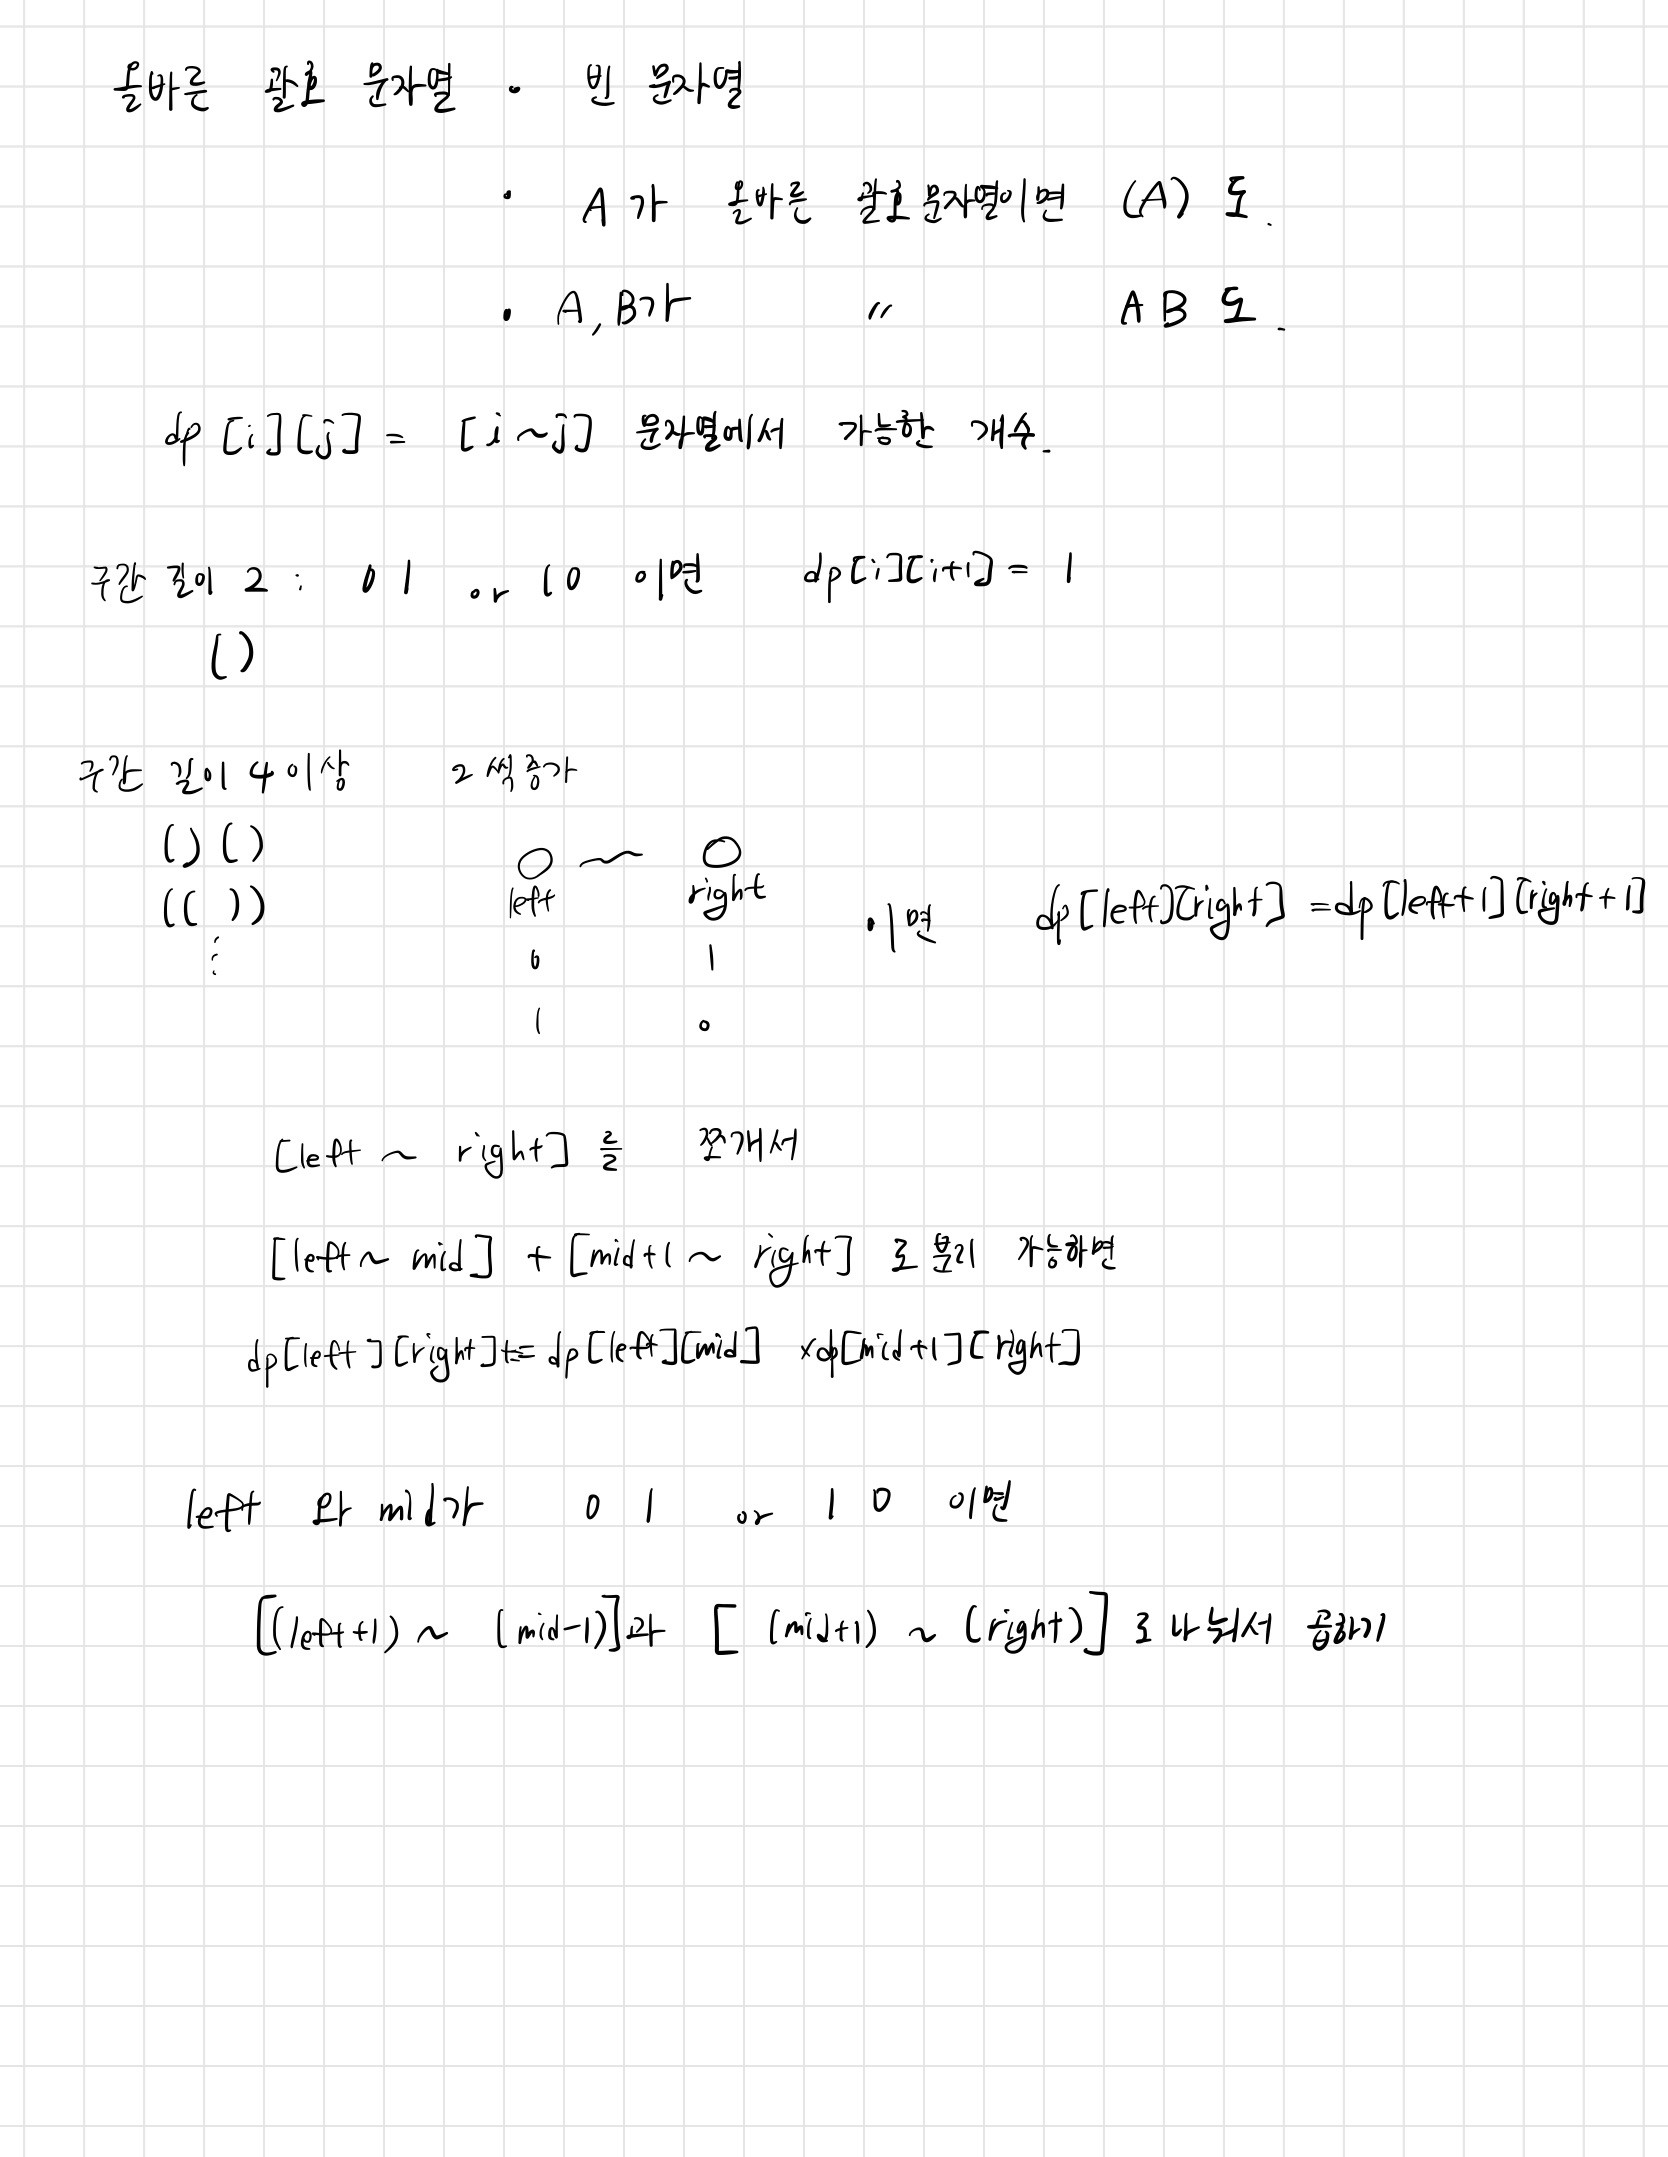 올바른 괄호 문자열 • 빈 문자열
• A가 올바른 괄호 문자열이면 (A) 도.
• A, B가 〃 AB 도.
dp[i][j] = [i ~ j] 문자열에서 가능한 개수.
구간 길이 2 : 0 1 or 1 0 이면 dp[i][i+1] = 1
()
구간 길이 4 이상 2씩 증가
()()
(( ))
⋮
○ ~ ○
left right 이면 dp[left][right] = dp[left+1][right+1]
0 1
1 0
[left ~ right] 를 쪼개서
[left ~ mid] + [mid+1 ~ right] 로 분리 가능하면
dp[left][right] += dp[left][mid] × dp[mid+1][right]
left 와 mid가 0 1 or 1 0 이면
[(left+1) ~ (mid-1)]과 [(mid+1) ~ (right)]로 나눠서 곱하기